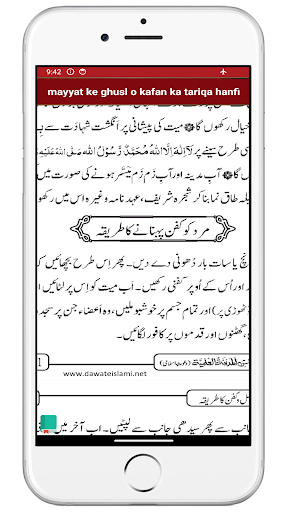 9:42
mayyat ke ghusl o kafan ka tariqa hanfi
خیال رکھوں گا ❁ میت کی پیشانی پر انگشت شہادت سے
طرح سینے پر لَآ اِلٰهَ اِلَّا اللهُ مُحَمَّدٌ رَّسُوْلُ الله صلی اللہ علیہ
گا ❁ آب مدینہ اور آب زم زم میسر ہونے کی صورت میں
طاق نما بنا کر شجرہ شریف، عہد نامہ وغیرہ اس میں رکھو
مرد کو کفن پہنانے کا طریقہ
یا سات بار دھونی دے دیں۔ پھر اس طرح بچھائیں کہ
اور اُس کے اُوپر کفنی رکھیں۔ اب میت کو اِس پر لٹائیں
ٹھوڑی پر) اور تمام جسم پر خوشبو ملیں، وہ اَعضاء جن پر سجد
گھٹنوں اور قدموں پر کافور لگائیں۔
www.dawateislami.net
کفن کا طریقہ
سے پھر سیدھی جانب سے لپیٹیں۔ اب آخر میں